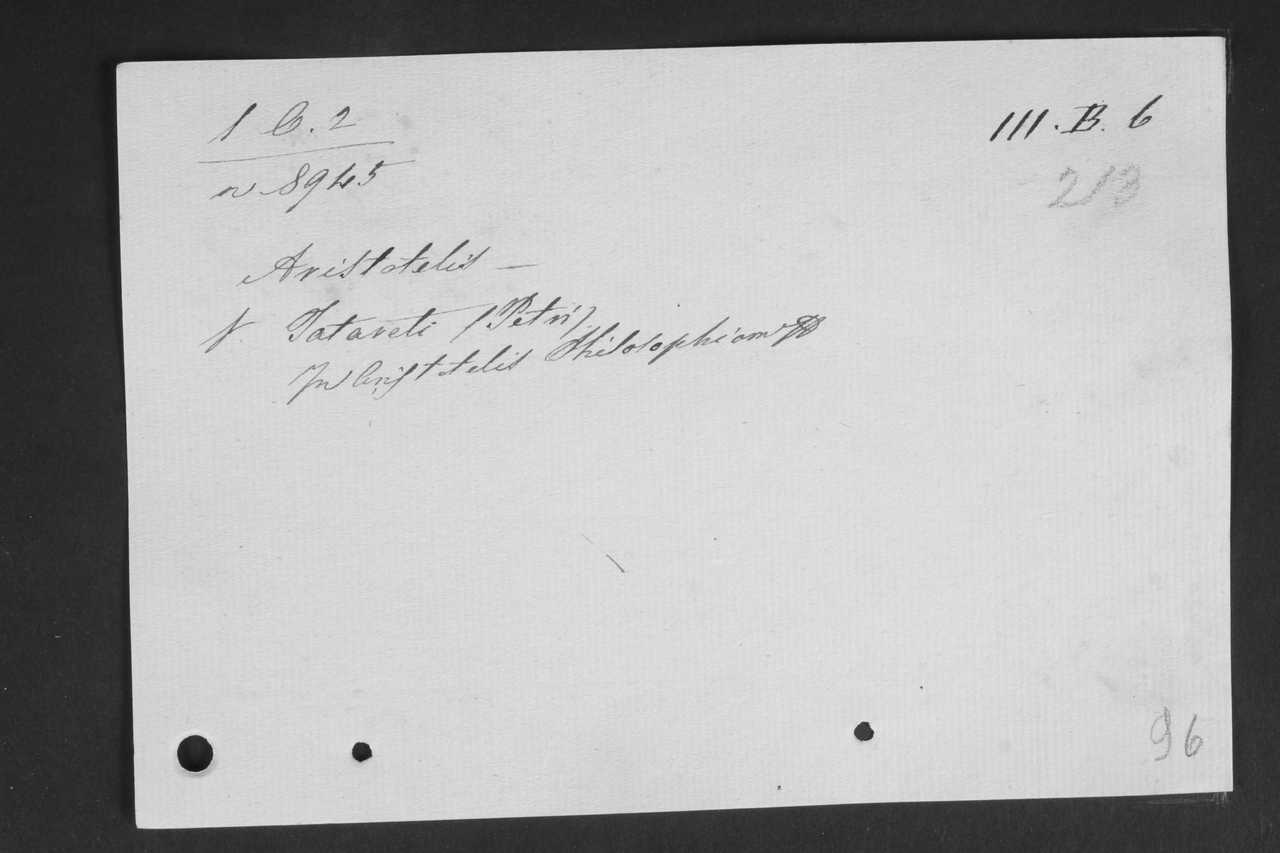 1 C. 2
III. B. 6
n 8945
213
Aristotelis —
V. Tatareti (Petri)
In Aristotelis Philosophiam
96